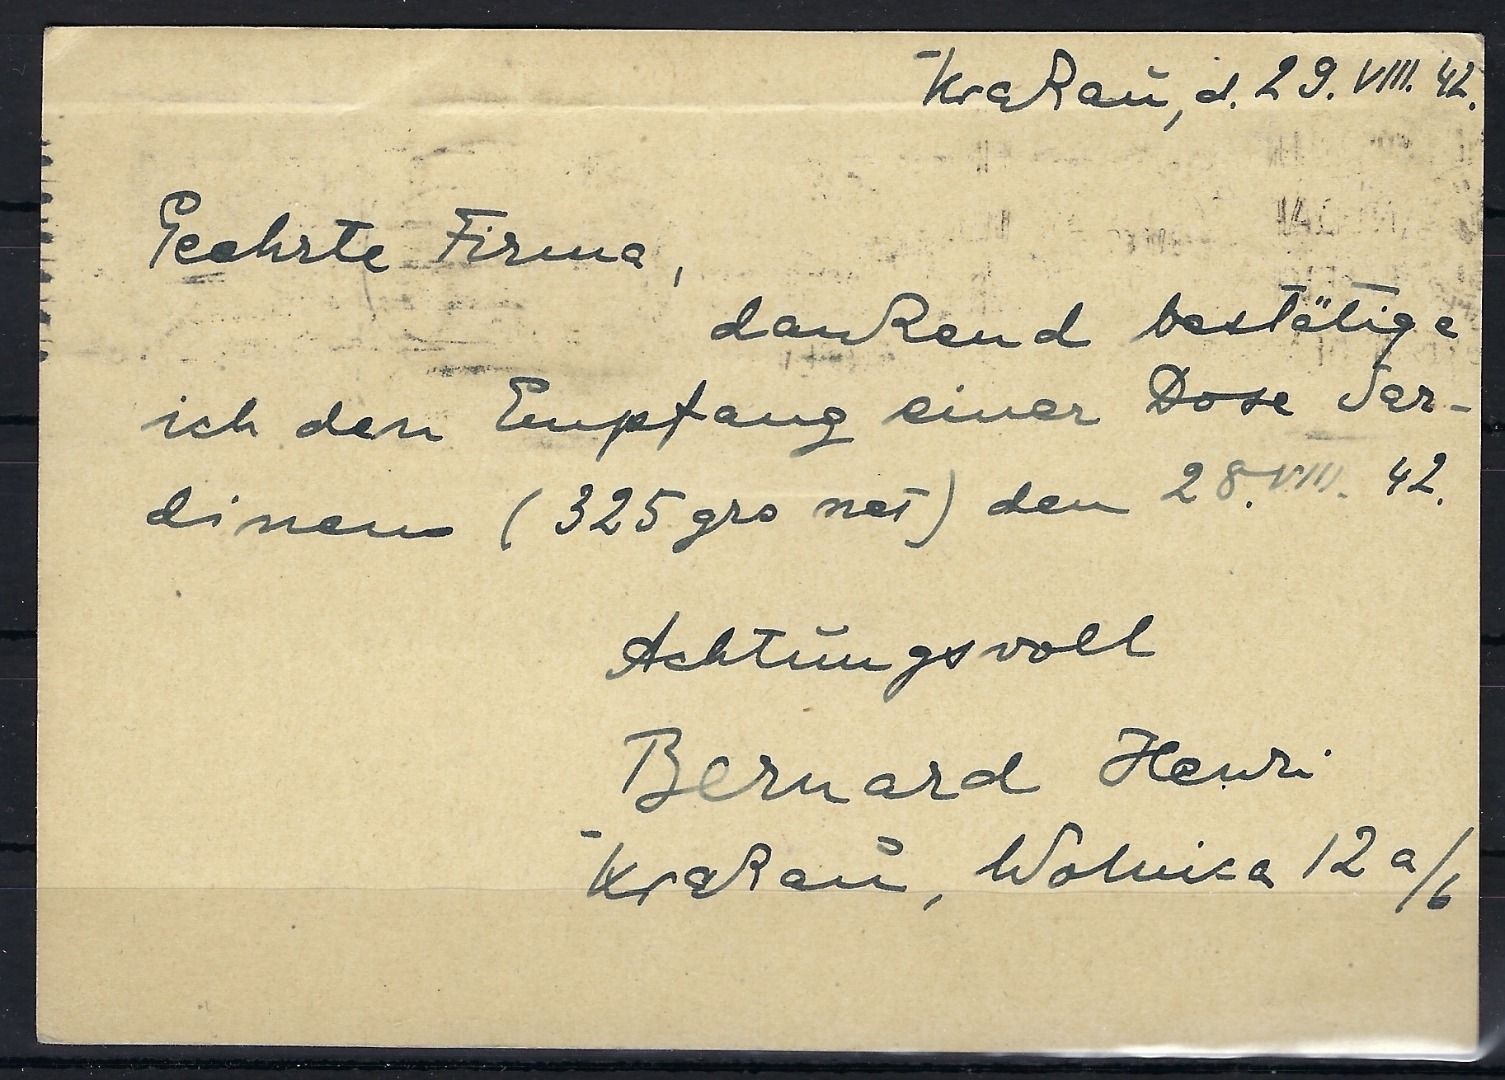 Krakau, d. 29. VIII. 42.
Geehrte Firma,
dankend bestätige
ich den Empfang einer Dose Sar-
dinen (325 grs net) den 28. VIII. 42.
Achtungsvoll
Bernard Henri
Krakau, Wolnica 12a/6